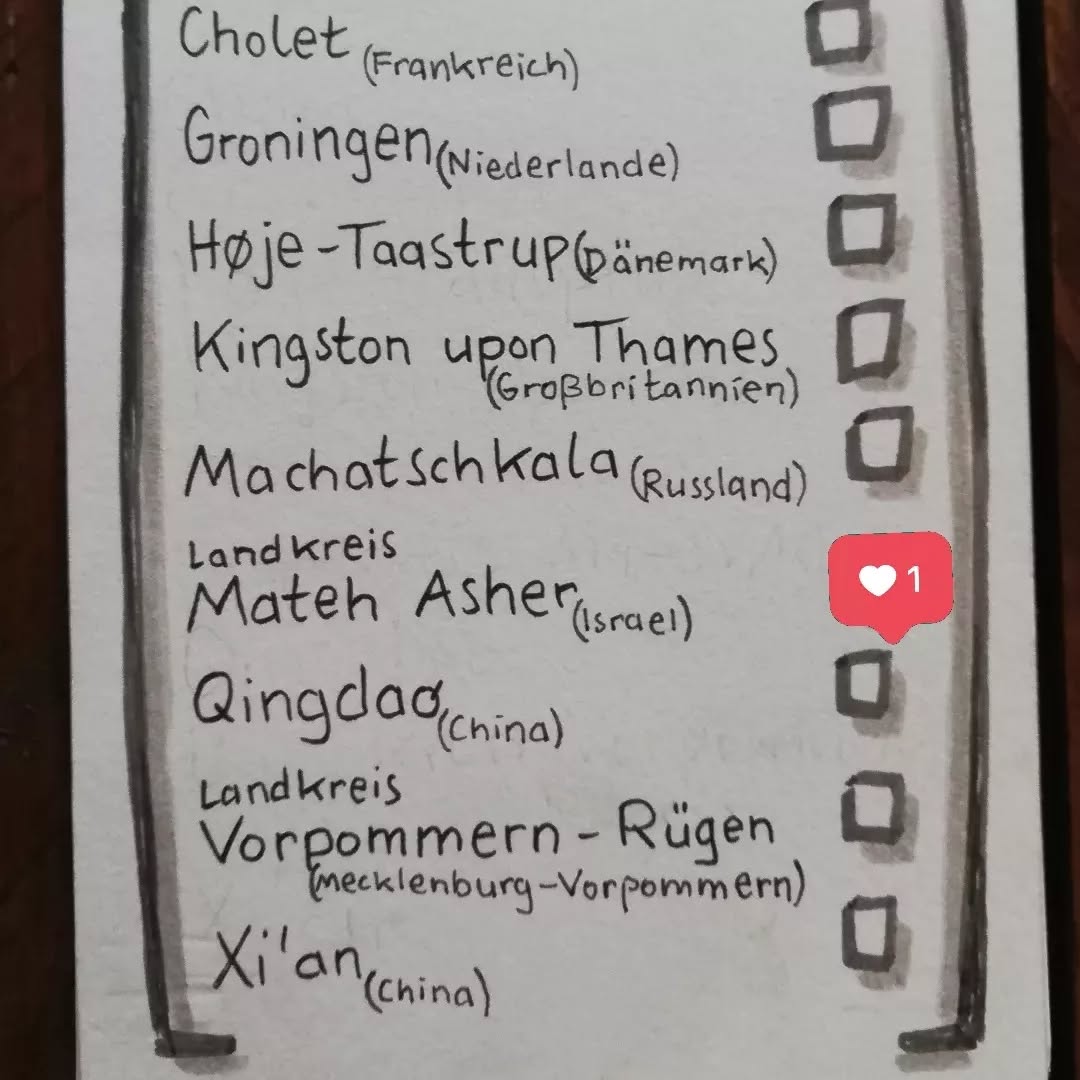 Cholet (Frankreich)
Groningen (Niederlande)
Høje-Taastrup (Dänemark)
Kingston upon Thames
(Großbritannien)
Machatschkala (Russland)
Landkreis
Mateh Asher (Israel)
1
Qingdao (China)
Landkreis
Vorpommern-Rügen
(Mecklenburg-Vorpommern)
Xi'an (China)